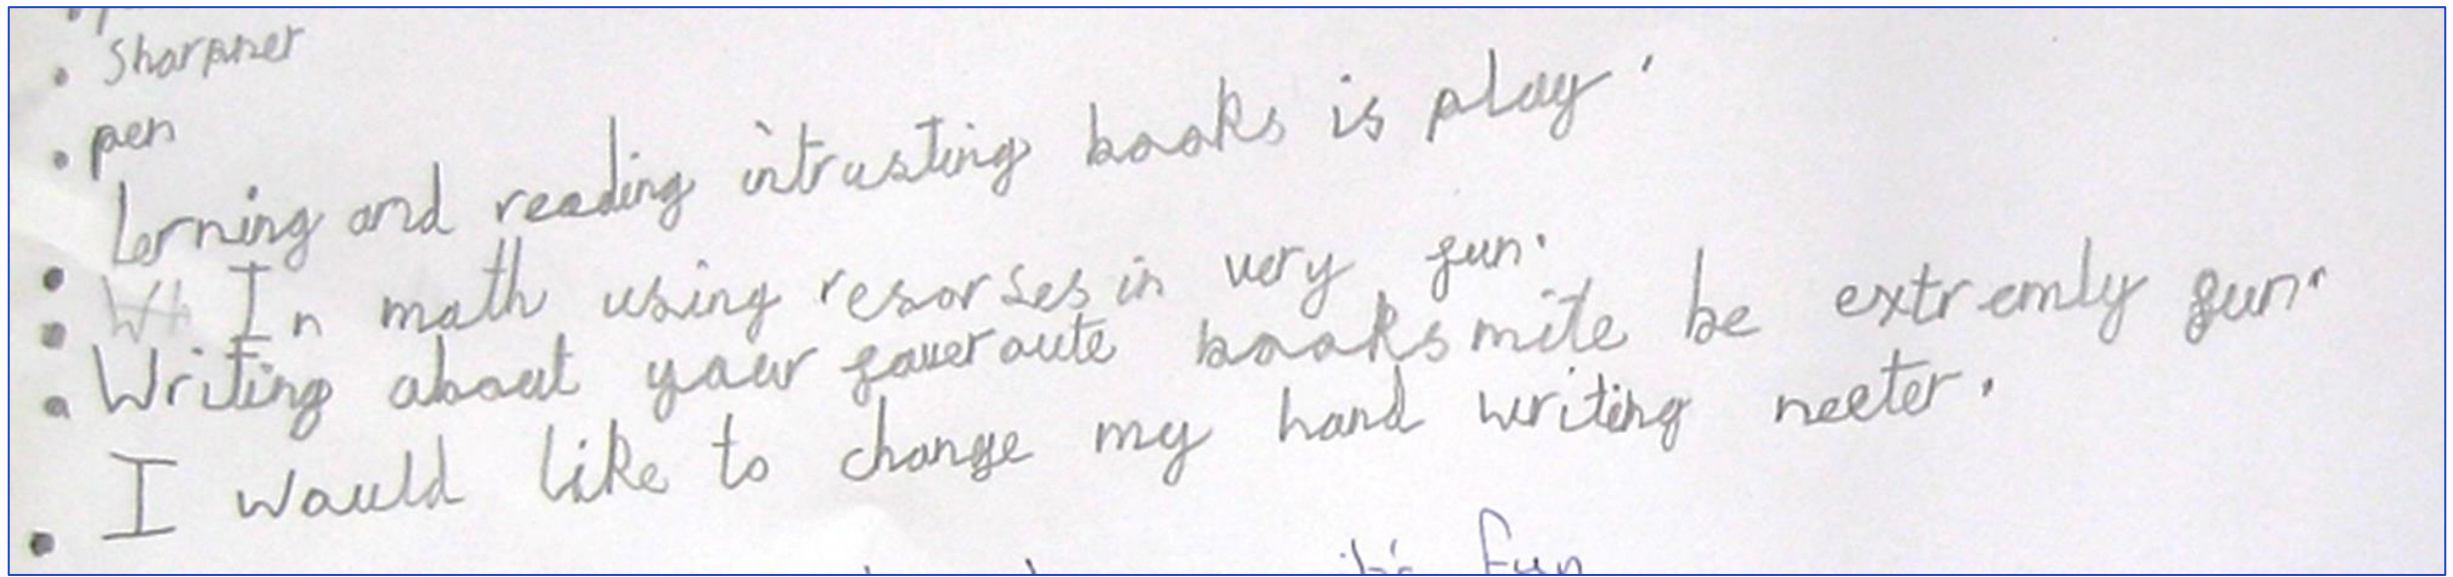 • Sharpner
• pen
Lerning and reading intrusting books is play.
• In math using resorses in very fun.
• Writing about your faveroute books mite be extremly fun.
• I would like to change my hand writing neeter.
it's fun